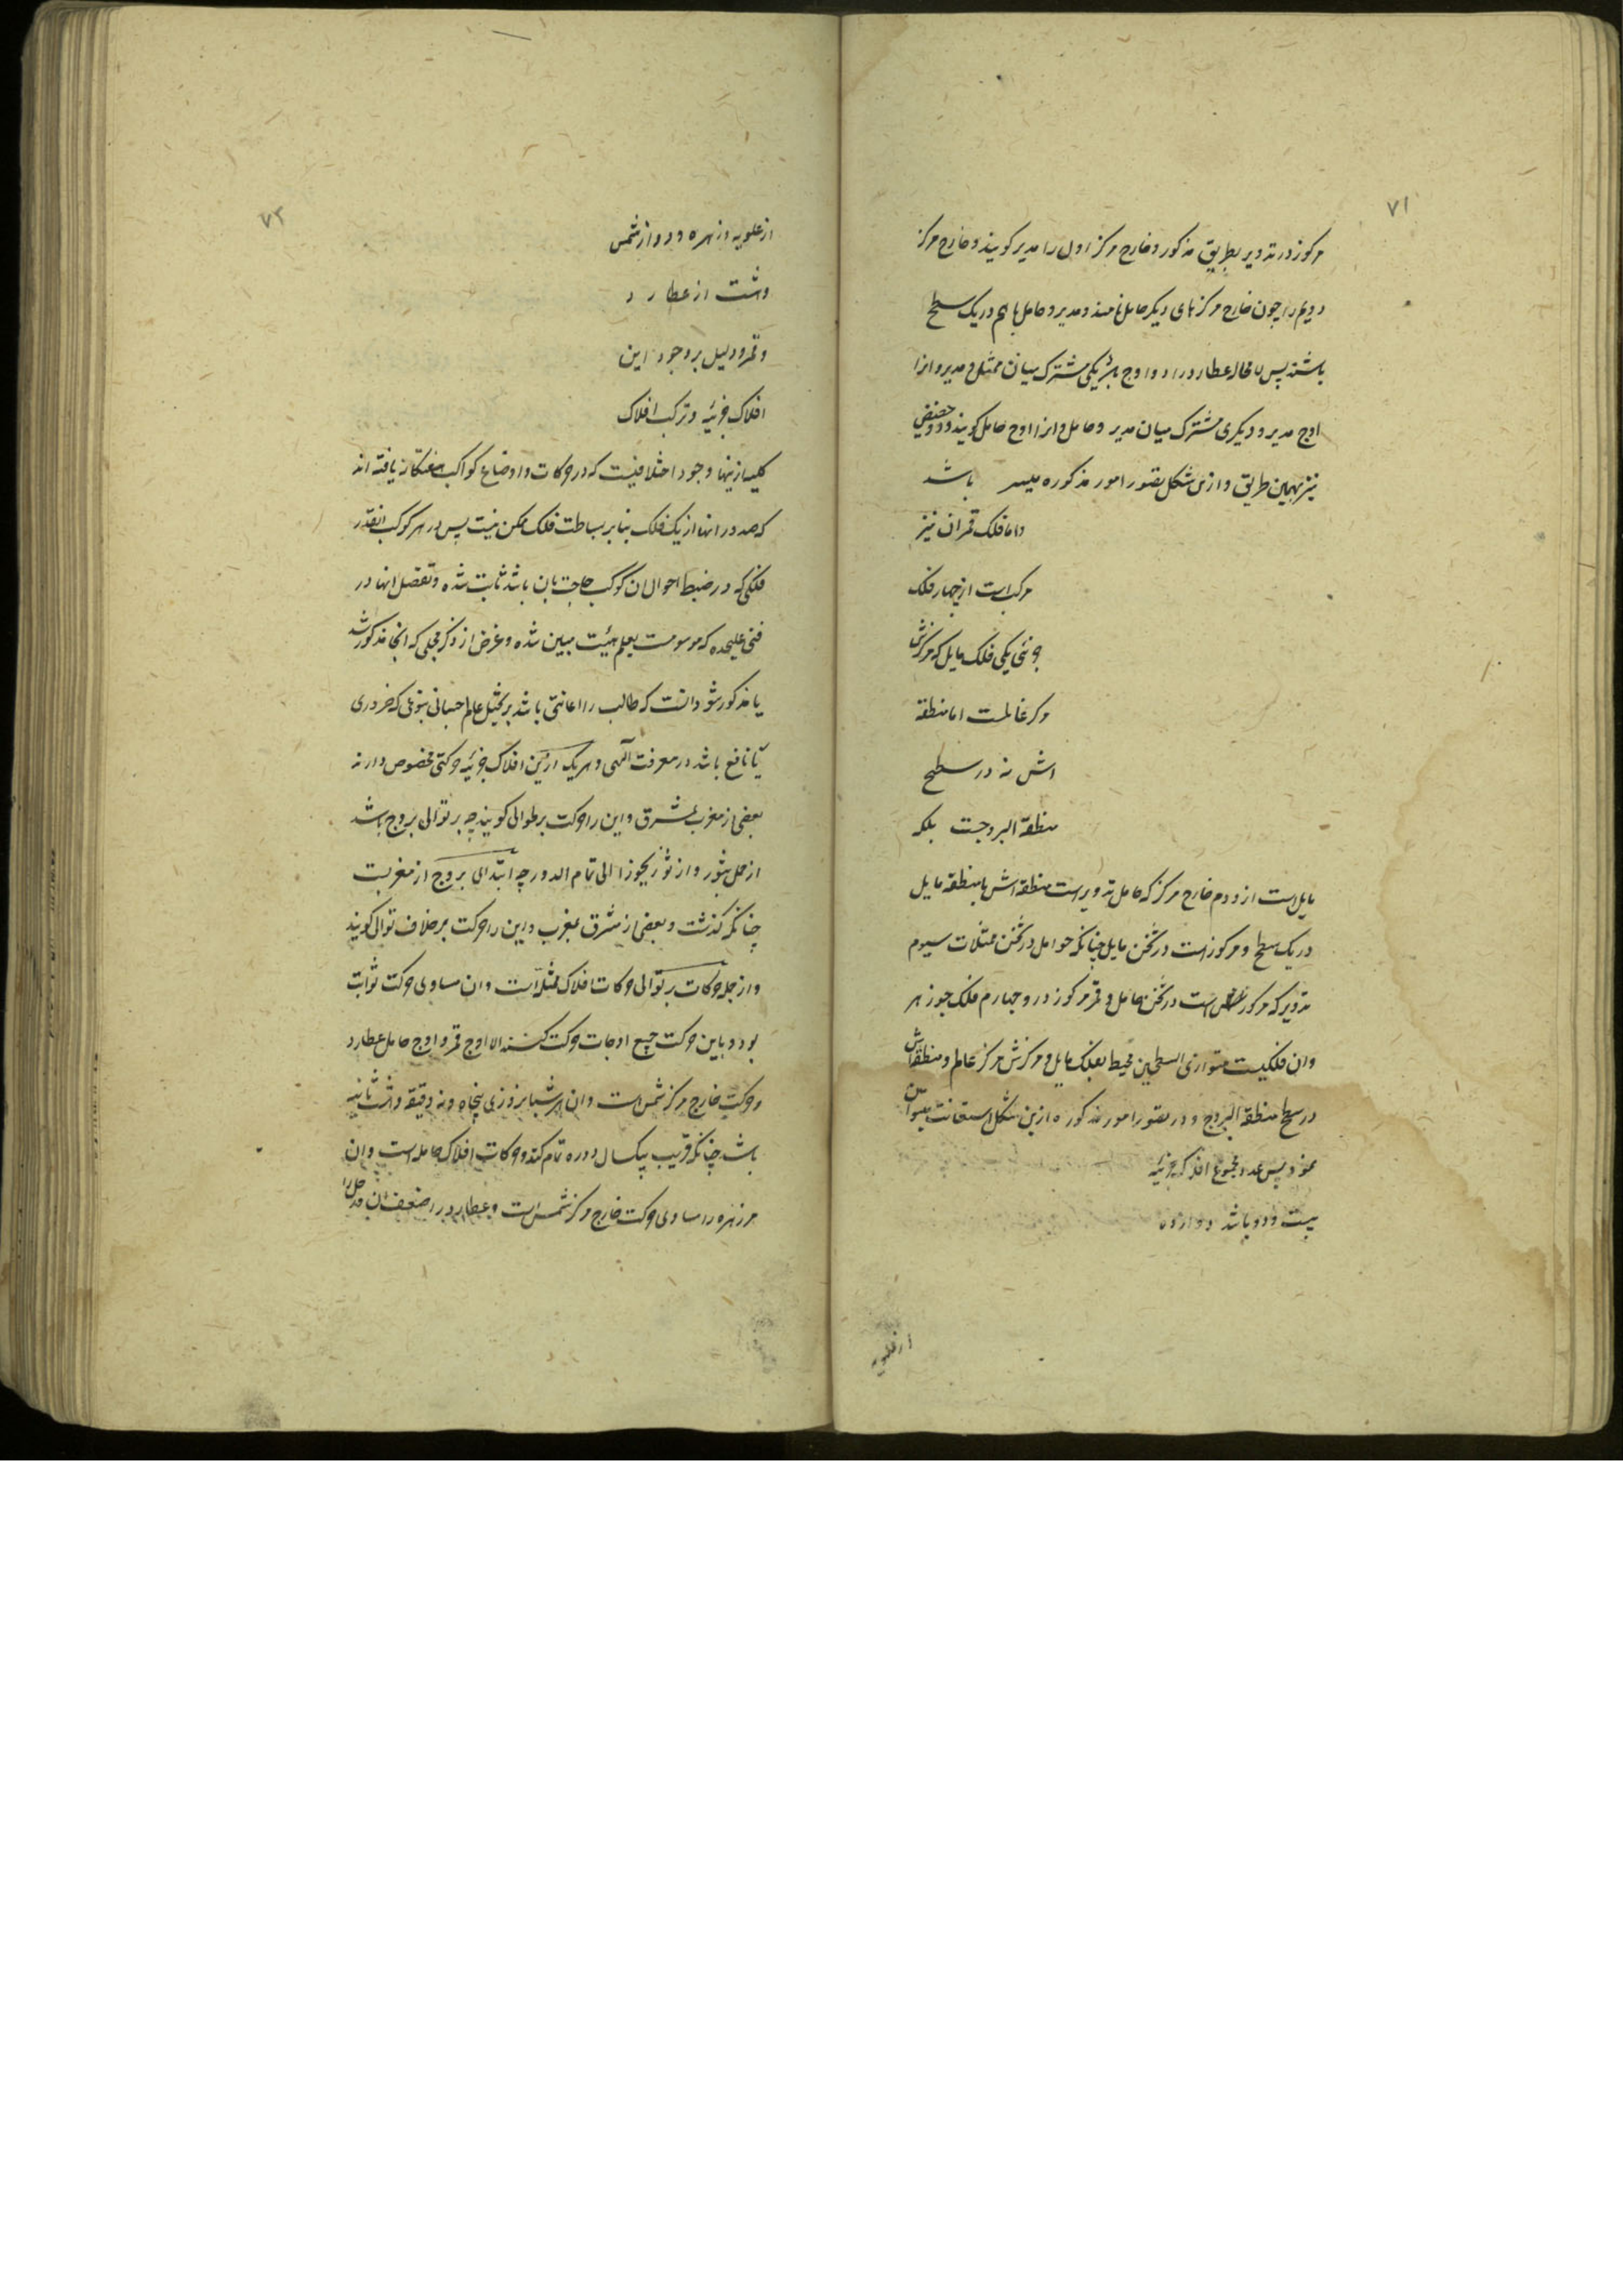 ۷۱
مرکوز در تدویر بطریق مذکور و خارج مرکز اول را مدیر کویند و خارج مرکز
دویم را چون خارج مرکزهای دیکر حامل نامند و مدیر و حامل باهم در یک سطح
باشند پس لا محاله عطارد را دو اوج باشد یکی مشترک میان ممثل و مدیر و انرا
اوج مدیر و دیکری مشترک میان مدیر و حامل و انرا اوج حامل کویند و دو حضیض
نیز بهمین طریق و ازین شکل تصور امور مذکوره میسر باشد
و اما فلک قمر ان نیز
مرکب است از چهار فلک
جوئی یکی فلک مایل که مرکزش
مرکز عالمست اما منطقه
اش نه در سطح
منطقة البروجست بلکه
مایل است ازو دوم خارج مرکز که حامل تدویر است منطقه اش با منطقه مایل
در یک سطح و مرکوز است در ثخن مایل چنانکه حوامل در ثخن ممثلات سیوم
تدویر که مرکوز است در ثخن حامل و قمر مرکوز درو چهارم فلک جوزهر
وان فلکیست متوازی السطحین محیط بفلک مایل و مرکزش مرکز عالم و منطقه اش
در سطح منطقة البروج و در تصور امور مذکوره ازین شکل استعانت میتوان
نمود پس عدد مجموع افلاک جزئیه
بیست و دو باشد دوازده
از علویه
۷۲
از علویه و زهره و دو از شمس
و هشت از عطارد
و قمر و دلیل بر وجود این
افلاک جزئیه و ترکب افلاک
کلیه ازینها وجود اختلافیست که در حرکات و اوضاع کواکب هفتکانه یافته اند
که صدور انها از یک فلک بنا بر بساطت فلک ممکن نیست پس در هر کوکب انقدر
فلکی که در ضبط احوال ان کوکب حاجت بان باشد ثابت شده و تفصیل انها در
فنی علیحده که موسومست بعلم هیئت مبین شده و غرض از ذکر مجملی که انجا مذکور شد
یا مذکور شود انست که طالب را اعانتی باشد بر تخیل عالم جسمانی بنوعی که ضروری
یا نافع باشد در معرفت الهی و هر یک ازین افلاک جزئیه حرکتی مخصوص دارند
بعضی از مغرب بمشرق و این را حرکت بر توالی کویند چه بر توالی بروج باشد
از حمل بثور و از ثور بجوزا الی تمام الدور چه ابتدای بروج از مغربست
چنانکه کذشت و بعضی از مشرق بمغرب و این را حرکت بر خلاف توالی کویند
و از جمله حرکات بر توالی حرکات افلاک ممثله است وان مساوی حرکت ثوابت
بود و باین حرکت جمیع اوجات حرکت کنند الا اوج قمر و اوج حامل عطارد
و حرکت خارج مرکز شمس است وان هر شبانروزی پنجاه و نه دقیقه و هشت ثانیه
باشد چنانکه قریب بیکسال دوره تمام کند و حرکات افلاک حامله است وان
مر زهره را مساوی حرکت خارج مرکز شمس است و عطارد را ضعف ان